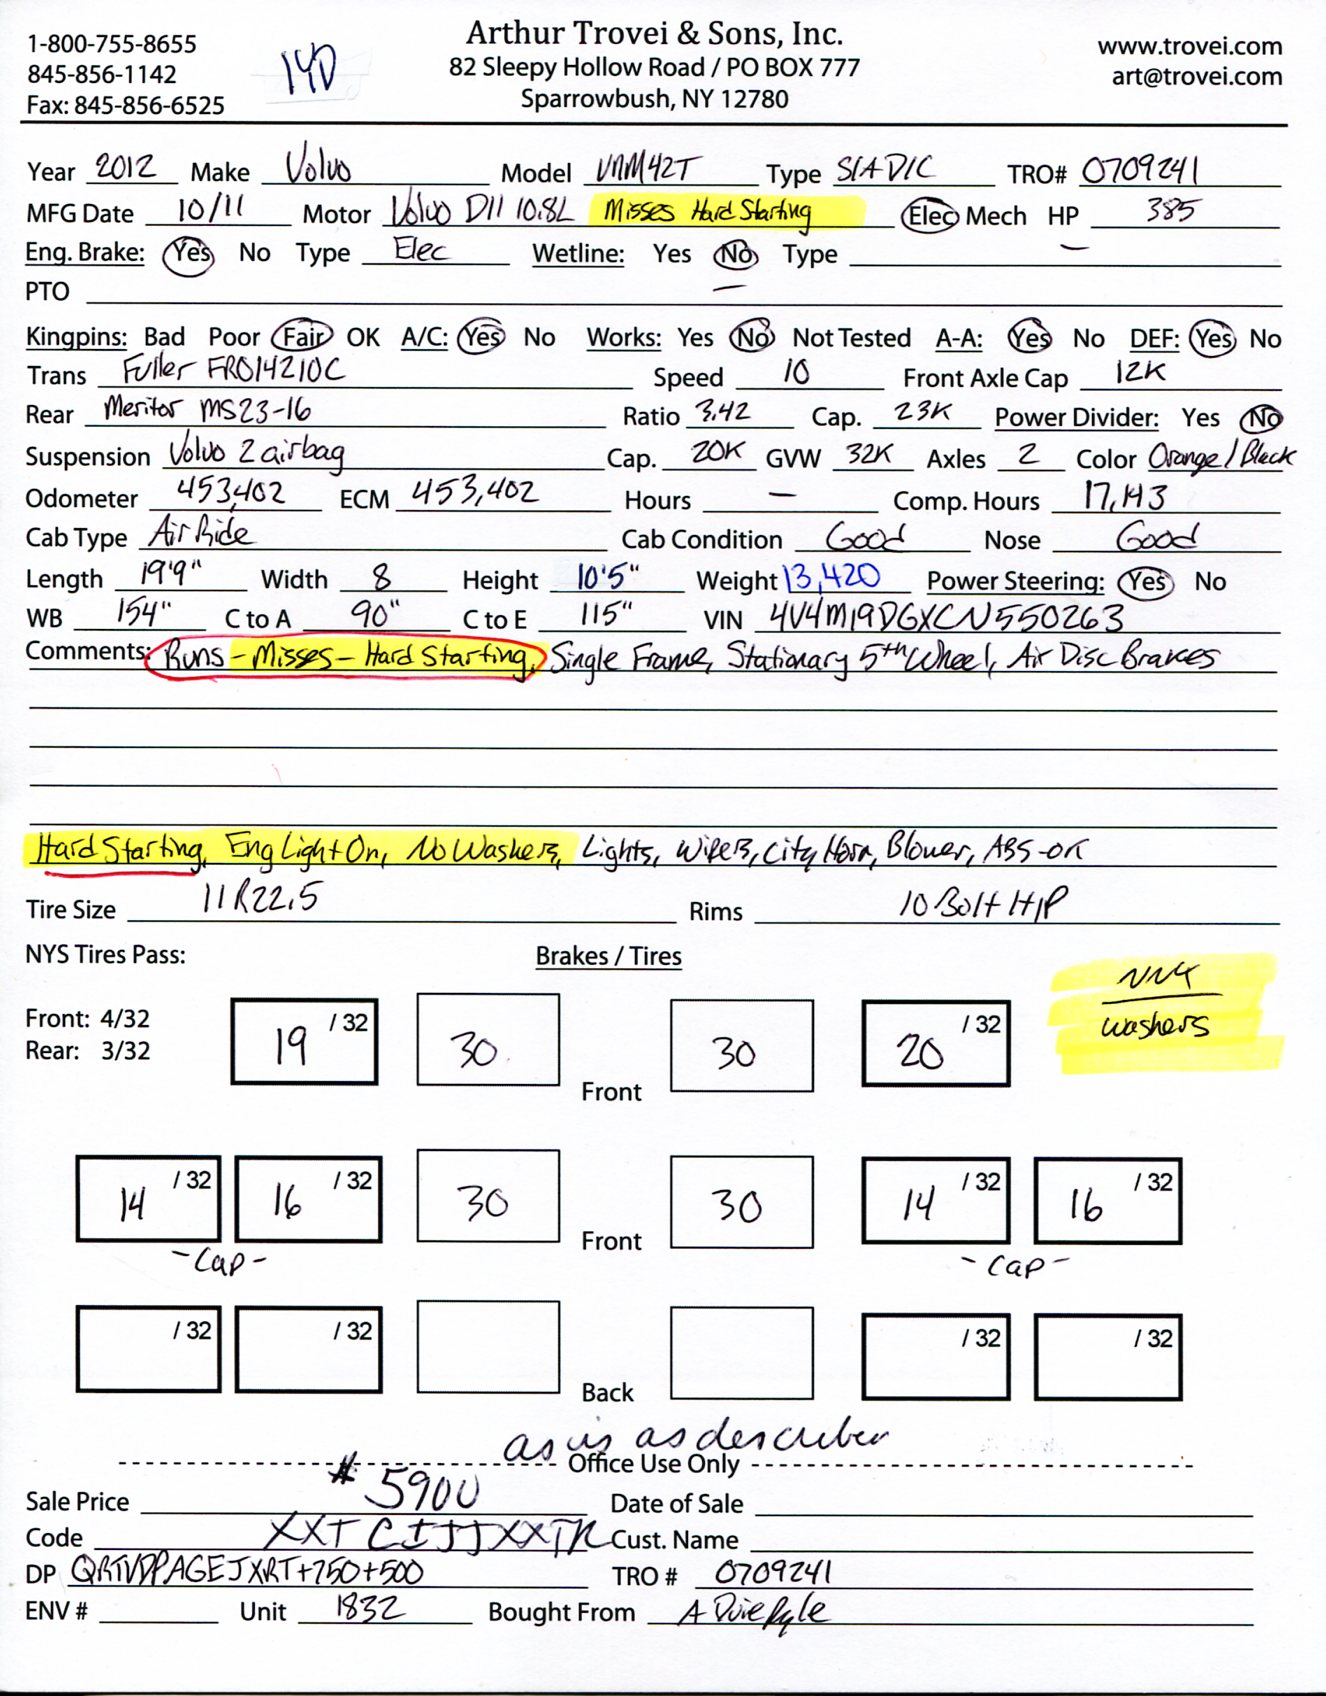 1-800-755-8655
845-856-1142
Fax: 845-856-6525
14D
Arthur Trovei & Sons, Inc.
82 Sleepy Hollow Road / PO BOX 777
Sparrowbush, NY 12780
www.trovei.com
art@trovei.com
Year 2012 Make Volvo Model VNM42T Type S/A D/C TRO# 0709241
MFG Date 10/11 Motor Volvo D11 10.8L Misses Hard Starting Elec Mech HP 385
Eng. Brake: Yes No Type Elec Wetline: Yes No Type
PTO
Kingpins: Bad Poor Fair OK A/C: Yes No Works: Yes No Not Tested A-A: Yes No DEF: Yes No
Trans Fuller FRO14210C Speed 10 Front Axle Cap 12K
Rear Meritor MS23-16 Ratio 3.42 Cap. 23K Power Divider: Yes No
Suspension Volvo 2 airbag Cap. 20K GVW 32K Axles 2 Color Orange/Black
Odometer 453,402 ECM 453,402 Hours — Comp. Hours 17,143
Cab Type Air Ride Cab Condition Good Nose Good
Length 19'9" Width 8 Height 10'5" Weight 13,420 Power Steering: Yes No
WB 154" C to A 90" C to E 115" VIN 4V4M19DGXCN550263
Comments: Runs - Misses - Hard Starting, Single Frame, Stationary 5th Wheel, Air Disc Brakes
Hard Starting, Eng Light On, No Washers, Lights, Wipers, City Horn, Blower, ABS-OK
Tire Size 11R22.5 Rims 10 Bolt H/P
NYS Tires Pass: Brakes / Tires
Front: 4/32
Rear: 3/32
washers
19 /32 30 Front 30 20 /32
14 /32 16 /32 30 Front 30 14 /32 16 /32
-Cap- -Cap-
/32 /32 Back /32 /32
as is as described
Office Use Only
Sale Price $5900 Date of Sale
Code Cust. Name
DP TRO # 0709241
ENV # Unit 1832 Bought From